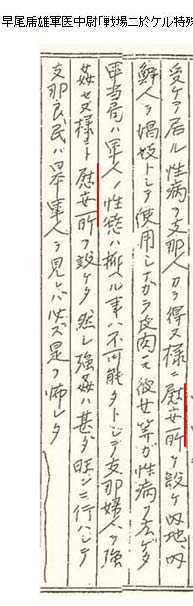 早尾乕雄軍医中尉「戦場ニ於ケル特殊
受ケ居ル性病ヲ支那人カラ得ス様ニ慰安所ヲ設ケ内地、内
鮮人ヲ娼妓トシテ使用シナガラ皮肉ニモ彼女等ガ性病ヲ広ゲタ
軍当局ハ軍人ノ性慾ハ抑ヘル事ハ不可能ダトシテ支那婦人ヲ強
姦セヌ様ニト慰安所ヲ設ケタ、然シ強姦ハ甚ダ旺ンニ行ハレテ
支那良民ハ日本軍人ヲ見レバ必ズ是ヲ怖レタ